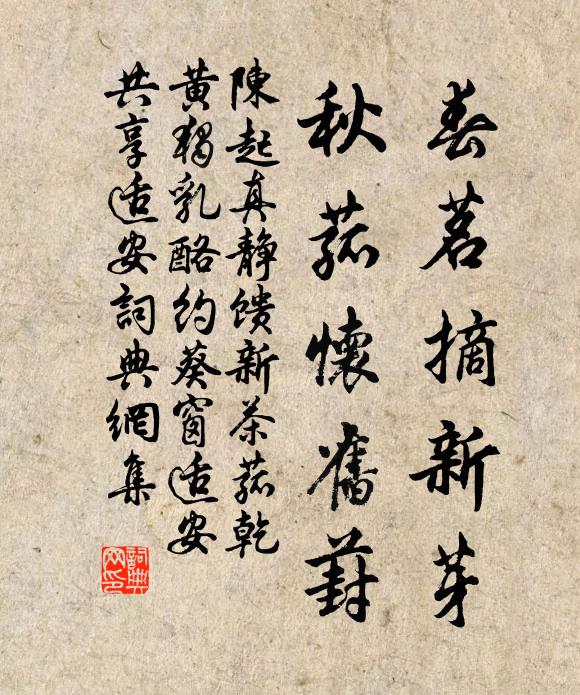 春茗摘新芽
秋菰懷舊葑
陳起真靜饋新茶菰乾
黃獨乳酪約葵窗适安
共享适安詞典網集
詞典网印